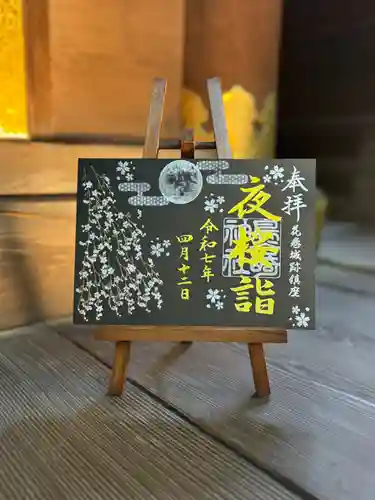 奉拝
花巻城跡鎮座
夜桜詣
令和七年
四月十二日